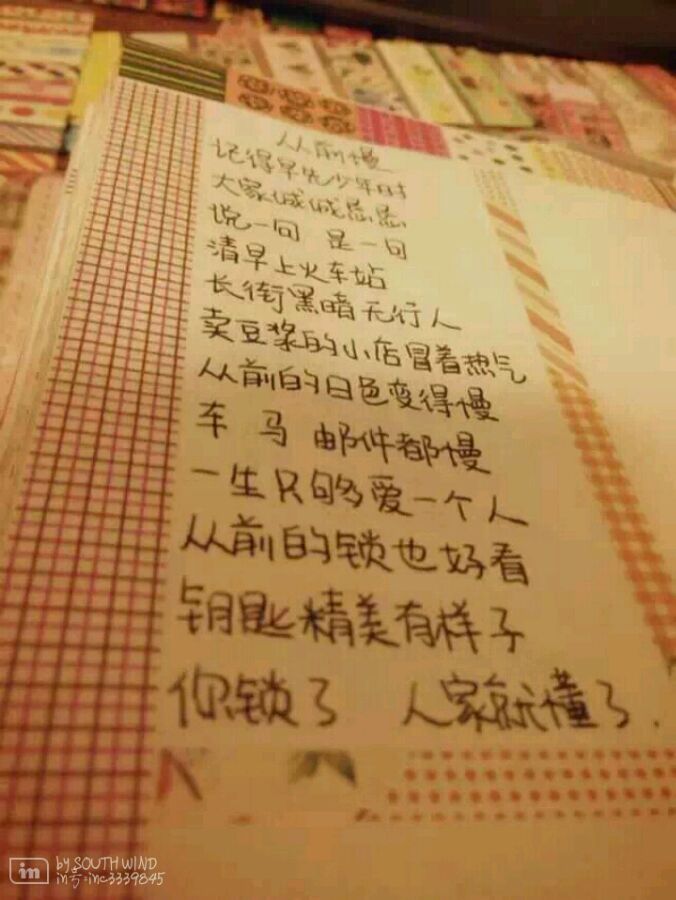 从前慢
记得早先少年时
大家诚诚恳恳
说一句 是一句
清早上火车站
长街黑暗无行人
卖豆浆的小店冒着热气
从前的日色变得慢
车 马 邮件都慢
一生只够爱一个人
从前的锁也好看
钥匙精美有样子
你锁了 人家就懂了.
in by SOUTH WIND
in号:inc3339845